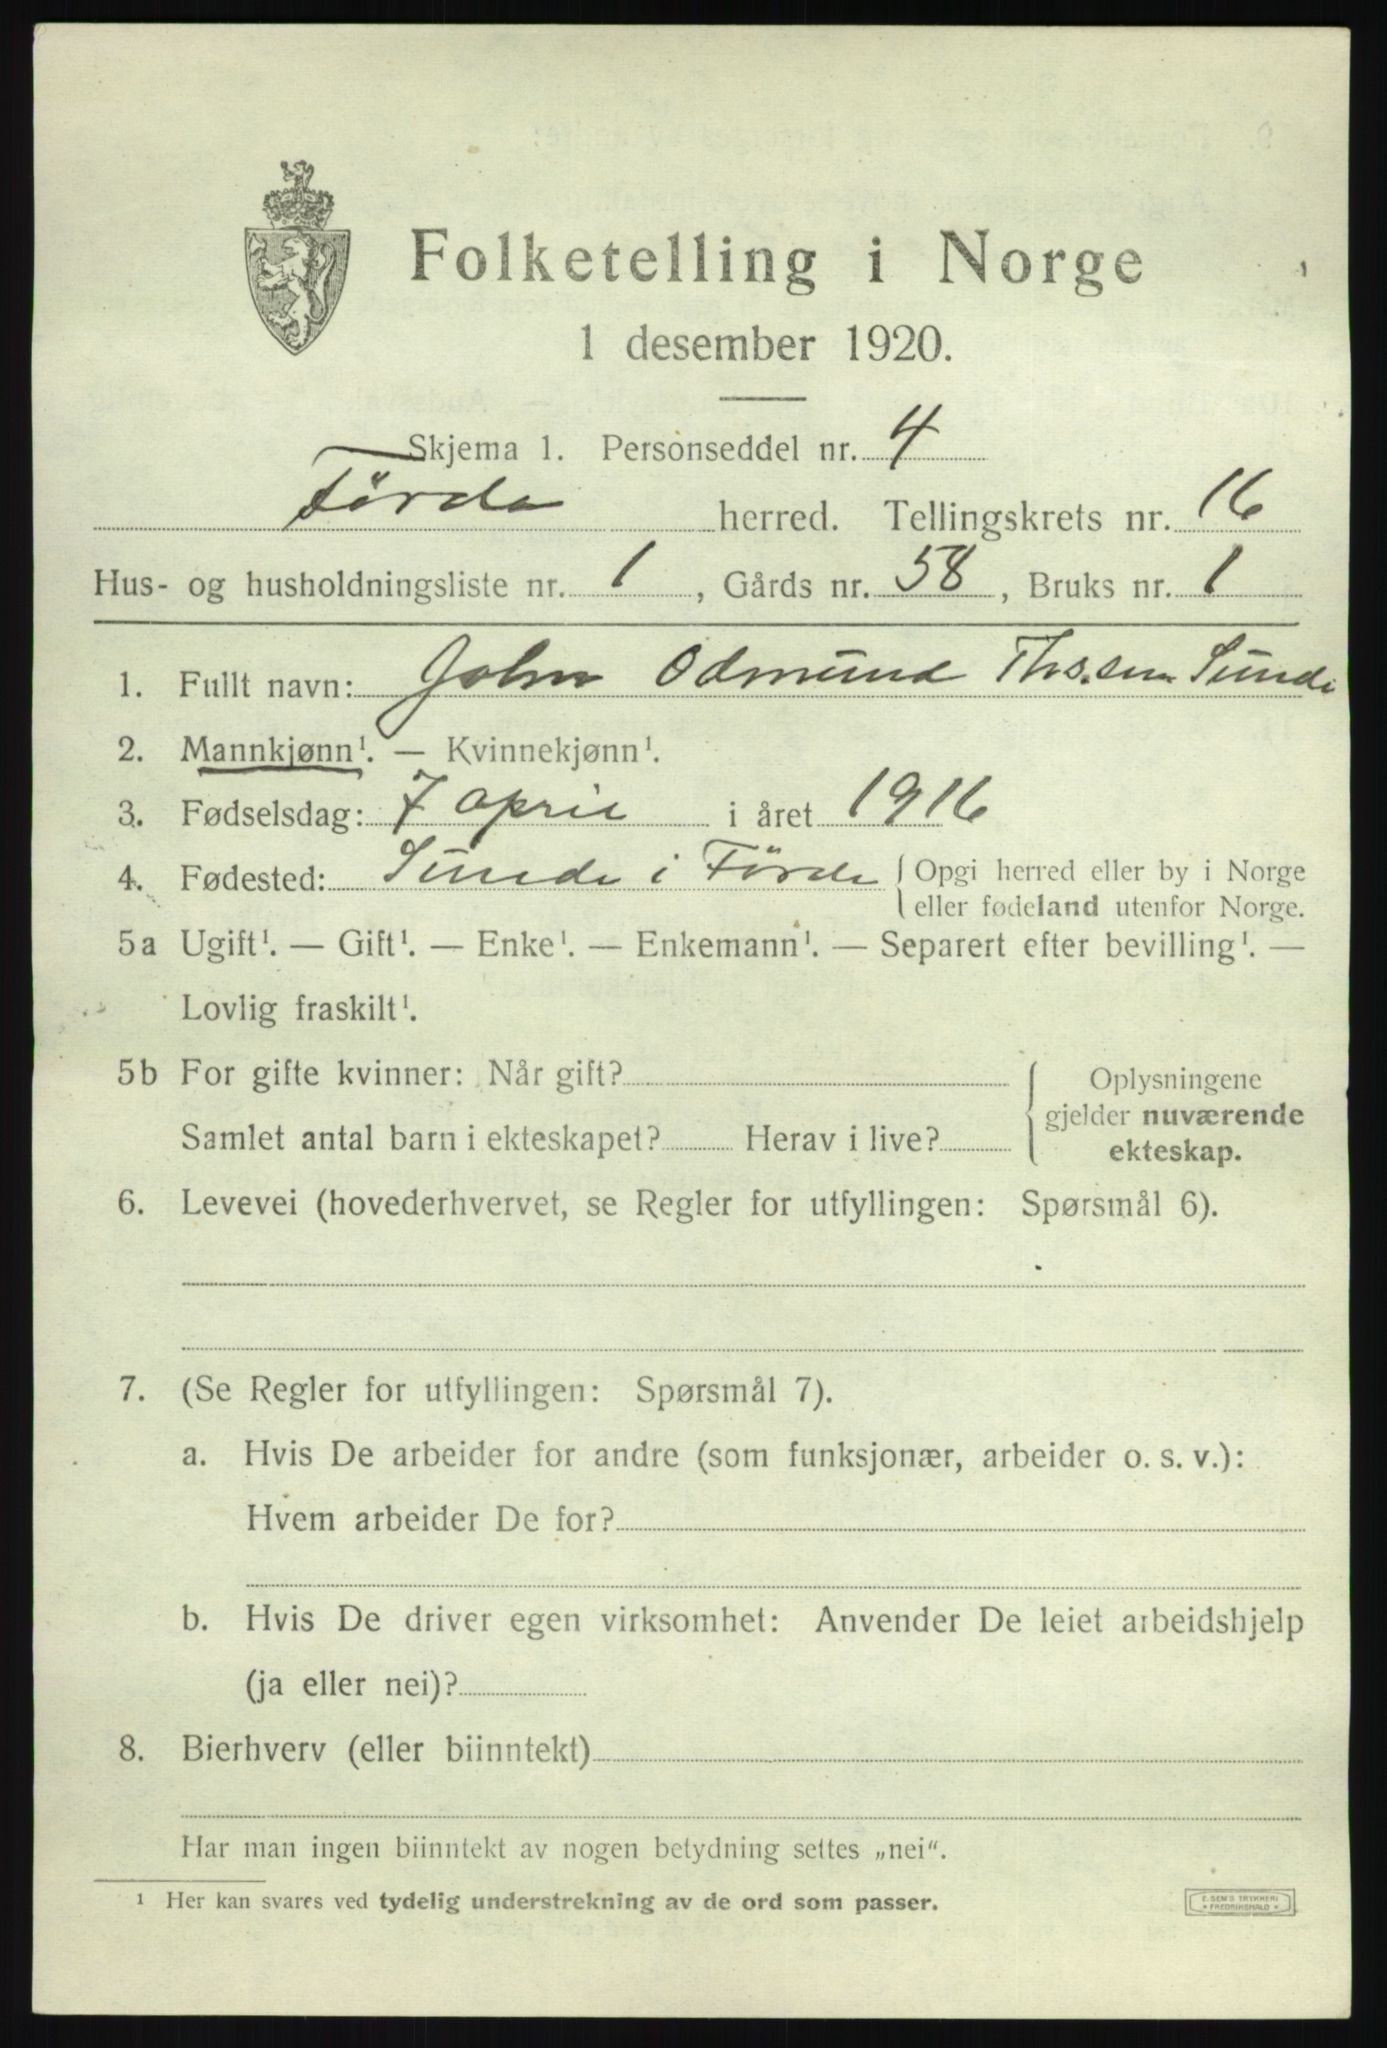 Folketelling i Norge
1 desember 1920.
Skjema 1. Personseddel nr. 4
Førde herred. Tellingskrets nr. 16
Hus- og husholdningsliste nr. 1, Gårds nr. 58, Bruks nr. 1
1. Fullt navn: John Odmund Ths.sen Sunde
2. Mannkjønn¹. — Kvinnekjønn¹.
3. Fødselsdag: 7 april i året 1916
4. Fødested: Sunde i Førde { Opgi herred eller by i Norge
eller fødeland utenfor Norge.
5a Ugift¹. — Gift¹. — Enke¹. — Enkemann¹. — Separert efter bevilling¹. —
Lovlig fraskilt¹.
5b For gifte kvinner: Når gift?
Samlet antal barn i ekteskapet? Herav i live?
{ Oplysningene
gjelder nuværende
ekteskap.
6. Levevei (hovederhvervet, se Regler for utfyllingen: Spørsmål 6).
7. (Se Regler for utfyllingen: Spørsmål 7).
a. Hvis De arbeider for andre (som funksjonær, arbeider o. s. v.):
Hvem arbeider De for?
b. Hvis De driver egen virksomhet: Anvender De leiet arbeidshjelp
(ja eller nei)?
8. Bierhverv (eller biinntekt)
Har man ingen biinntekt av nogen betydning settes „nei“.
¹ Her kan svares ved tydelig understrekning av de ord som passer.
E. SEM'S TRYKKERI
* FREDRIKSHALD *